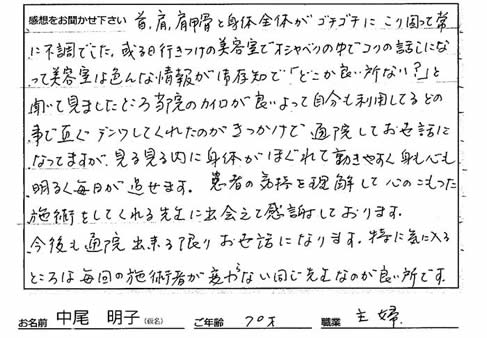 感想をお聞かせ下さい 首,肩,肩甲骨と身体全体がゴチゴチにこり固って常
に不調でした。或る日行きつけの美容室でオシャベリの中でコリの話しにな
って美容室は色んな情報が 存知で「どこか良い所ない?」と
聞いて見ましたところ当院のカイロが良いよって自分も利用してるとの
事で直ぐデンワしてくれたのがきっかけで通院してお世話に
なってますが、見る見る内に身体がほぐれて動きやすく身も心も
明るく毎日が過せます。患者の気持を理解して心のこもった
施術をしてくれる先生に出会えて感謝しております。
今後も通院出来る限りお世話になります。特に気に入る
ところは毎回の施術者が変わらない同じ先生なのが良い所です。
お名前 中尾 明子(仮名) ご年齢 70才 職業 主婦